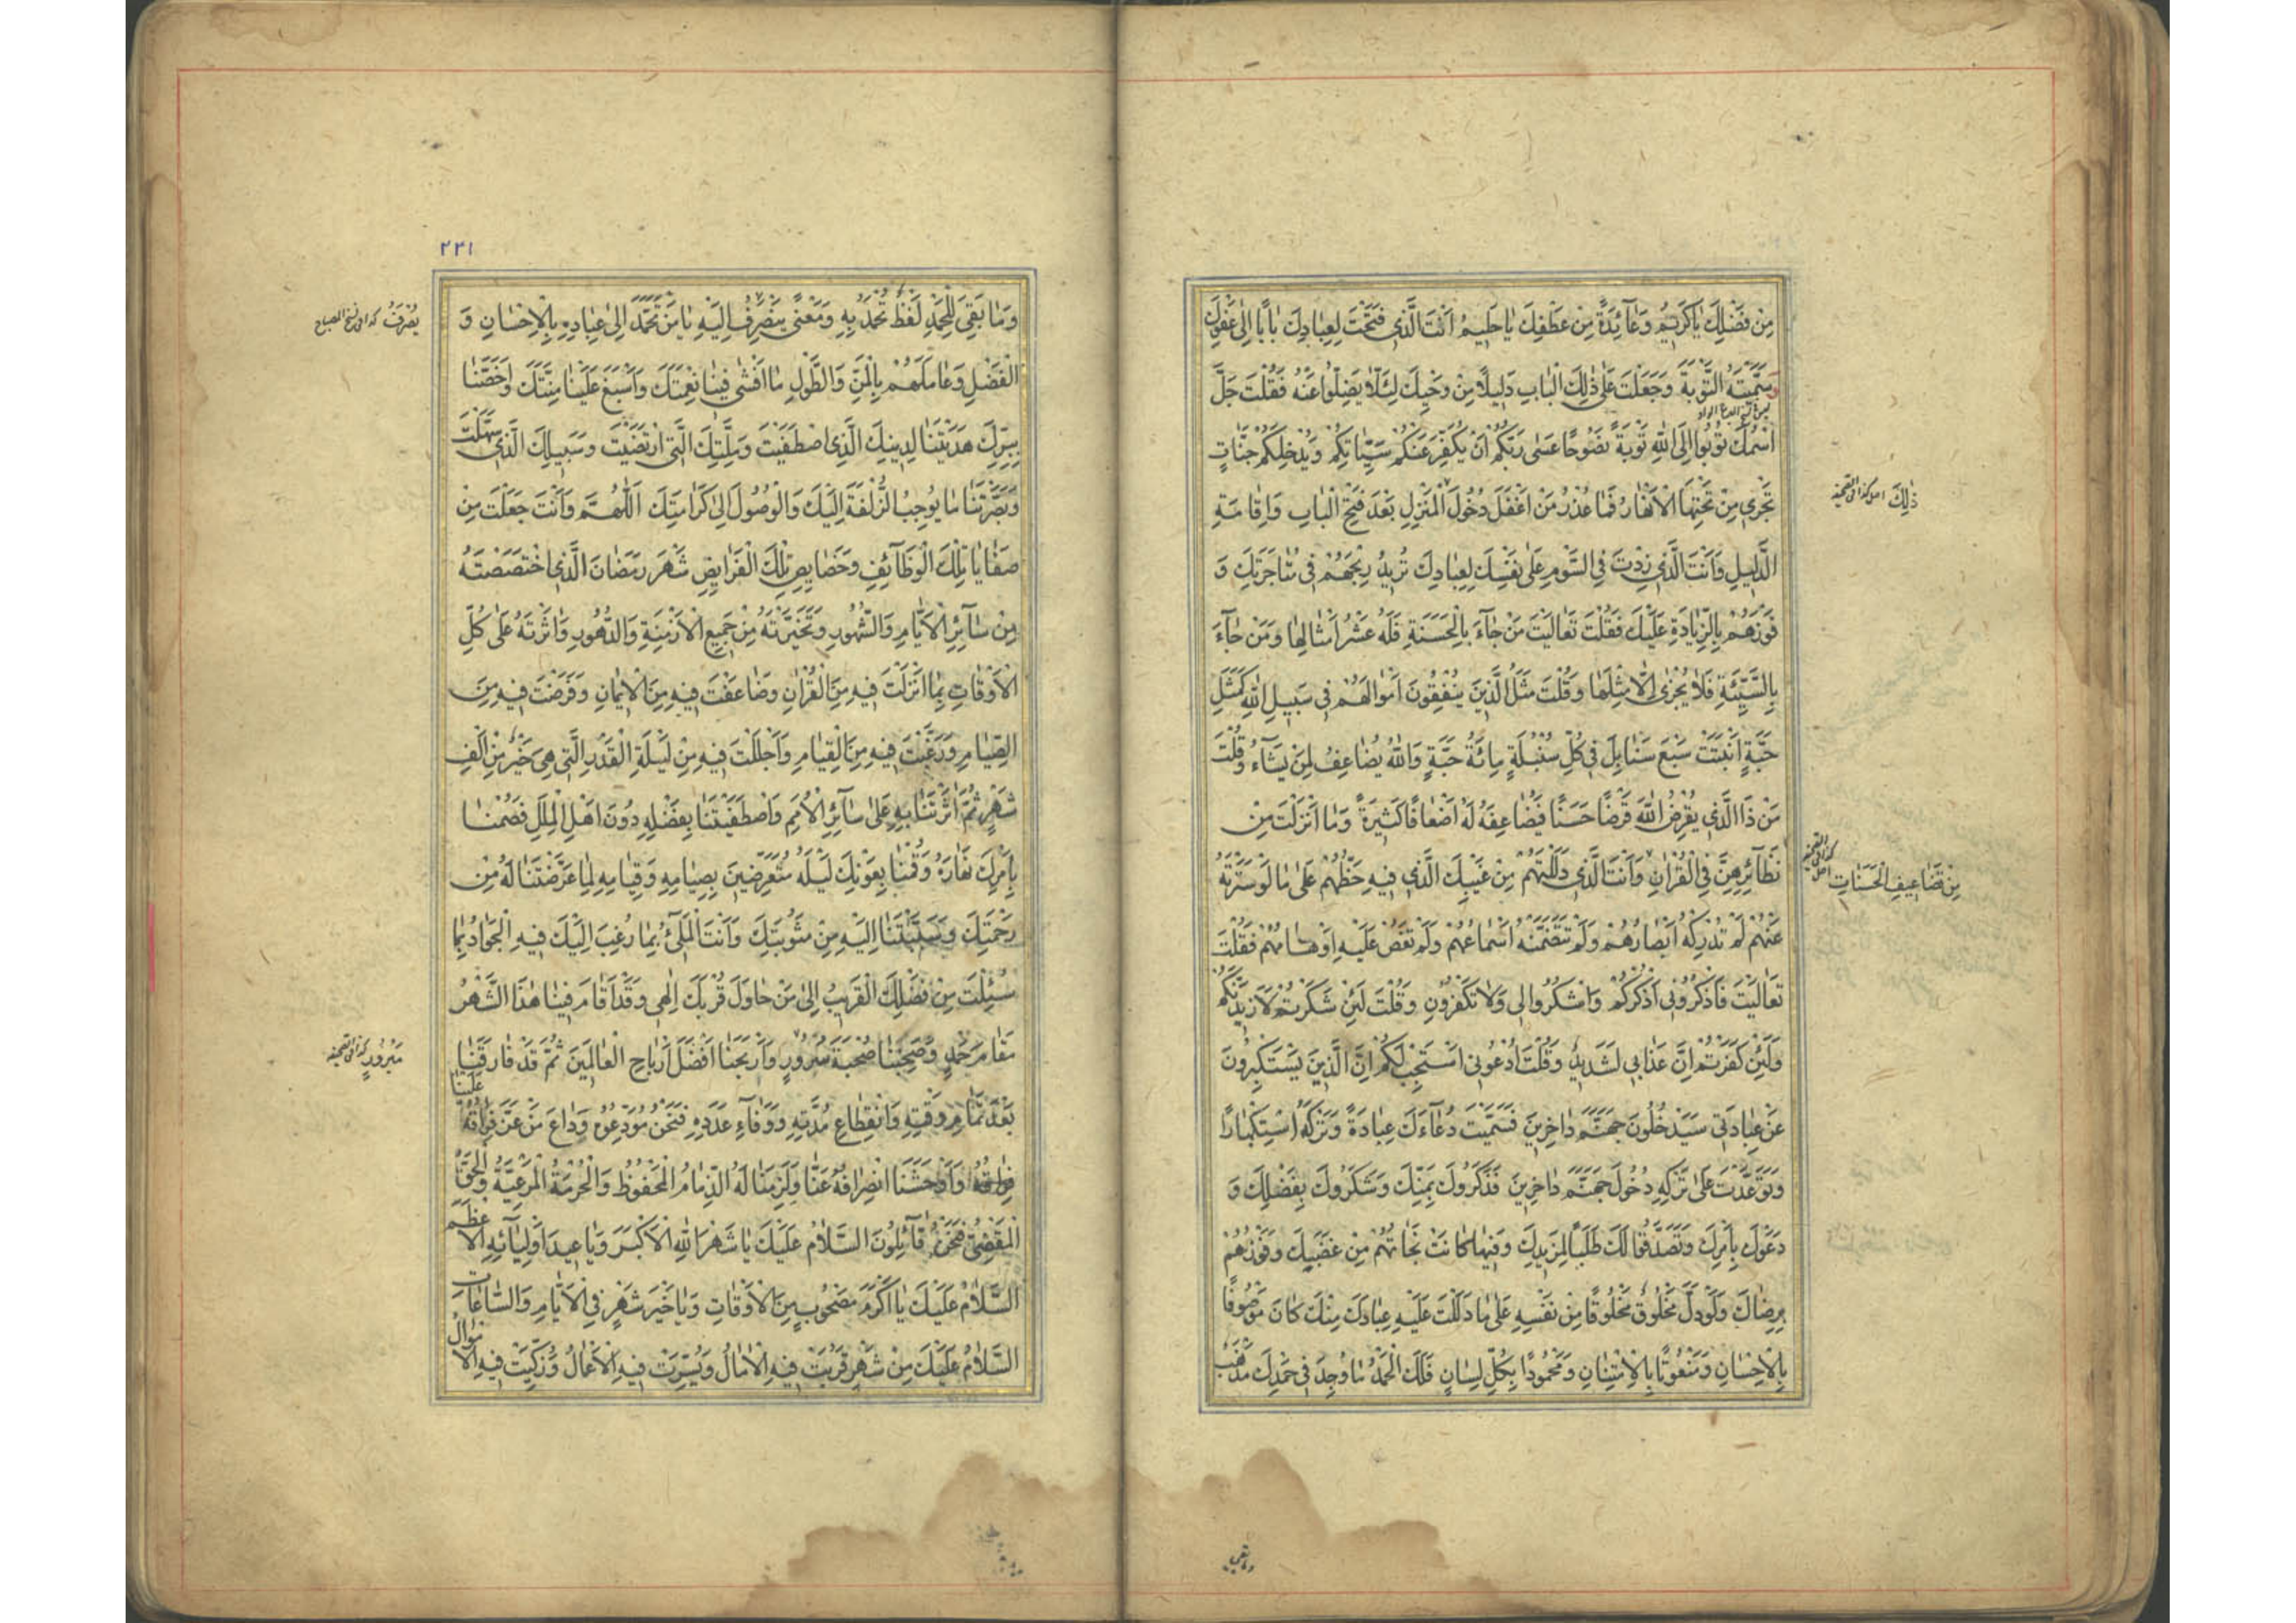 مِنْ فَضْلِكَ يَا كَرِيمُ وَعَآئِدَةً مِنْ عَطْفِكَ يَا حَلِيمُ اَنْتَ الَّذِي فَتَحْتَ لِعِبَادِكَ بَابًا اِلَى عَفْوِكَ
وَسَمَّيْتَهُ التَّوْبَةَ وَجَعَلْتَ عَلَى ذٰلِكَ الْبَابِ دَلِيلًا مِنْ وَحْيِكَ لِئَلَّا يَضِلُّوا عَنْهُ فَقُلْتَ جَلَّ
اسْمُكَ تُوبُوا اِلَى اللهِ تَوْبَةً نَصُوحًا عَسٰى رَبُّكُمْ اَنْ يُكَفِّرَ عَنْكُمْ سَيِّئَاتِكُمْ وَيُدْخِلَكُمْ جَنَّاتٍ
تَجْرِي مِنْ تَحْتِهَا الْاَنْهَارُ فَمَا عُذْرُ مَنْ اَغْفَلَ دُخُولَ الْمَنْزِلِ بَعْدَ فَتْحِ الْبَابِ وَاِقَامَةِ
ذٰلِكَ
الدَّلِيلِ وَاَنْتَ الَّذِي زِدْتَ فِي السَّوْمِ عَلَى نَفْسِكَ لِعِبَادِكَ تُرِيدُ رِبْحَهُمْ فِي مُتَاجَرَتِكَ وَ
فَوْزَهُمْ بِالزِّيَادَةِ عَلَيْكَ فَقُلْتَ تَعَالَيْتَ مَنْ جَآءَ بِالْحَسَنَةِ فَلَهُ عَشْرُ اَمْثَالِهَا وَمَنْ جَآءَ
بِالسَّيِّئَةِ فَلَا يُجْزٰى اِلَّا مِثْلَهَا وَقُلْتَ مَثَلُ الَّذِينَ يُنْفِقُونَ اَمْوَالَهُمْ فِي سَبِيلِ اللهِ كَمَثَلِ
حَبَّةٍ اَنْبَتَتْ سَبْعَ سَنَابِلَ فِي كُلِّ سُنْبُلَةٍ مِائَةُ حَبَّةٍ وَاللهُ يُضَاعِفُ لِمَنْ يَشَآءُ وَقُلْتَ
مَنْ ذَا الَّذِي يُقْرِضُ اللهَ قَرْضًا حَسَنًا فَيُضَاعِفَهُ لَهُ اَضْعَافًا كَثِيرَةً وَمَا اَنْزَلْتَ مِنْ
نَظَآئِرِهِنَّ فِي الْقُرْاٰنِ وَاَنْتَ الَّذِي دَلَلْتَهُمْ مِنْ غَيْبِكَ الَّذِي فِيهِ حَظُّهُمْ عَلَى مَا لَوْ سَتَرْتَهُ
مِنْ تَضَاعِيفِ الْحَسَنَاتِ
عَنْهُمْ لَمْ تُدْرِكْهُ اَبْصَارُهُمْ وَلَمْ تَتَضَمَّنْهُ اَسْمَاعُهُمْ وَلَمْ تَغُصْ عَلَيْهِ اَوْهَامُهُمْ فَقُلْتَ
تَعَالَيْتَ فَاذْكُرُونِي اَذْكُرْكُمْ وَاشْكُرُوا لِي وَلَا تَكْفُرُونِ وَقُلْتَ لَئِنْ شَكَرْتُمْ لَاَزِيدَنَّكُمْ
وَلَئِنْ كَفَرْتُمْ اِنَّ عَذَابِي لَشَدِيدٌ وَقُلْتَ ادْعُونِي اَسْتَجِبْ لَكُمْ اِنَّ الَّذِينَ يَسْتَكْبِرُونَ
عَنْ عِبَادَتِي سَيَدْخُلُونَ جَهَنَّمَ دَاخِرِينَ فَسَمَّيْتَ دُعَآءَكَ عِبَادَةً وَتَرْكَهُ اسْتِكْبَارًا
وَتَوَعَّدْتَ عَلَى تَرْكِهِ دُخُولَ جَهَنَّمَ دَاخِرِينَ فَذَكَرُوكَ بِمَنِّكَ وَشَكَرُوكَ بِفَضْلِكَ وَ
دَعَوْكَ بِاَمْرِكَ وَتَصَدَّقُوا لَكَ طَلَبًا لِمَزِيدِكَ وَفِيهَا كَانَتْ نَجَاتُهُمْ مِنْ غَضَبِكَ وَفَوْزُهُمْ
بِرِضَاكَ وَلَوْ دَلَّ مَخْلُوقٌ مَخْلُوقًا مِنْ نَفْسِهِ عَلَى مَا دَلَلْتَ عَلَيْهِ عِبَادَكَ مِنْكَ كَانَ مَوْصُوفًا
بِالْاِحْسَانِ وَمَنْعُوتًا بِالْاِمْتِنَانِ وَمَحْمُودًا بِكُلِّ لِسَانٍ فَلَكَ الْحَمْدُ مَا وُجِدَ فِي حَمْدِكَ مَذْهَبٌ
وما بقي
٢٣١
وَمَا بَقِيَ لِلْحَمْدِ لَفْظٌ تُحْمَدُ بِهِ وَمَعْنًى يَنْصَرِفُ اِلَيْهِ يَا مَنْ تَحَمَّدَ اِلَى عِبَادِهِ بِالْاِحْسَانِ وَ
يُصْرَفُ
الْفَضْلِ وَعَامَلَهُمْ بِالْمَنِّ وَالطَّوْلِ مَا اَفْشٰى فِينَا نِعْمَتَكَ وَاَسْبَغَ عَلَيْنَا مِنَّتَكَ وَاَخَصَّنَا
بِبِرِّكَ هَدَيْتَنَا لِدِينِكَ الَّذِي اصْطَفَيْتَ وَمِلَّتِكَ الَّتِي ارْتَضَيْتَ وَسَبِيلِكَ الَّذِي سَهَّلْتَ
وَبَصَّرْتَنَا مَا يُوجِبُ الزُّلْفَةَ اِلَيْكَ وَالْوُصُولَ اِلَى كَرَامَتِكَ اَللّٰهُمَّ وَاَنْتَ جَعَلْتَ مِنْ
صَفَايَا تِلْكَ الْوَظَآئِفِ وَخَصَايِصِ تِلْكَ الْفَرَايِضِ شَهْرَ رَمَضَانَ الَّذِي اخْتَصَصْتَهُ
مِنْ سَآئِرِ الْاَيَّامِ وَالشُّهُورِ وَتَخَيَّرْتَهُ مِنْ جَمِيعِ الْاَزْمِنَةِ وَالدُّهُورِ وَاٰثَرْتَهُ عَلَى كُلِّ
الْاَوْقَاتِ بِمَا اَنْزَلْتَ فِيهِ مِنَ الْقُرْاٰنِ وَضَاعَفْتَ فِيهِ مِنَ الْاِيمَانِ وَفَرَضْتَ فِيهِ مِنَ
الصِّيَامِ وَرَغَّبْتَ فِيهِ مِنَ الْقِيَامِ وَاَجْلَلْتَ فِيهِ مِنْ لَيْلَةِ الْقَدْرِ الَّتِي هِيَ خَيْرٌ مِنْ اَلْفِ
شَهْرٍ ثُمَّ اٰثَرْتَنَا بِهِ عَلَى سَآئِرِ الْاُمَمِ وَاصْطَفَيْتَنَا بِفَضْلِهِ دُونَ اَهْلِ الْمِلَلِ فَصُمْنَا
بِاَمْرِكَ نَهَارَهُ وَقُمْنَا بِعَوْنِكَ لَيْلَهُ مُتَعَرِّضِينَ بِصِيَامِهِ وَقِيَامِهِ لِمَا عَرَّضْتَنَا لَهُ مِنْ
رَحْمَتِكَ وَسَبَّبْتَنَا اِلَيْهِ مِنْ مَثُوبَتِكَ وَاَنْتَ الْمَلِيءُ بِمَا رُغِبَ اِلَيْكَ فِيهِ الْجَوَادُ بِمَا
سُئِلْتَ مِنْ فَضْلِكَ الْقَرِيبُ اِلَى مَنْ حَاوَلَ قُرْبَكَ اِلٰهِي وَقَدْ اَقَامَ فِينَا هٰذَا الشَّهْرُ
مَقَامَ حَمْدٍ وَصَحِبَنَا صُحْبَةَ سُرُورٍ وَاَرْبَحَنَا اَفْضَلَ اَرْبَاحِ الْعَالَمِينَ ثُمَّ قَدْ فَارَقَنَا
مَبْرُورٍ
بَعْدَ تَمَامِ وَقْتِهِ وَانْقِطَاعِ مُدَّتِهِ وَوَفَآءِ عَدَدِهِ فَنَحْنُ مُوَدِّعُوهُ وَدَاعَ مَنْ عَزَّ فِرَاقُهُ عَلَيْنَا
وَاَوْحَشَنَا انْصِرَافُهُ عَنَّا وَلَزِمَنَا لَهُ الذِّمَامُ الْمَحْفُوظُ وَالْحُرْمَةُ الْمَرْعِيَّةُ وَالْحَقُّ
الْمَقْضِيُّ فَنَحْنُ قَآئِلُونَ السَّلَامُ عَلَيْكَ يَا شَهْرَ اللهِ الْاَكْبَرَ وَيَا عِيدَ اَوْلِيَآئِهِ الْاَعْظَمَ
السَّلَامُ عَلَيْكَ يَا اَكْرَمَ مَصْحُوبٍ مِنَ الْاَوْقَاتِ وَيَا خَيْرَ شَهْرٍ فِي الْاَيَّامِ وَالسَّاعَاتِ
السَّلَامُ عَلَيْكَ مِنْ شَهْرٍ قَرُبَتْ فِيهِ الْاٰمَالُ وَيُسِّرَتْ فِيهِ الْاَعْمَالُ وَزُكِّيَتْ فِيهِ الْاَمْوَالُ